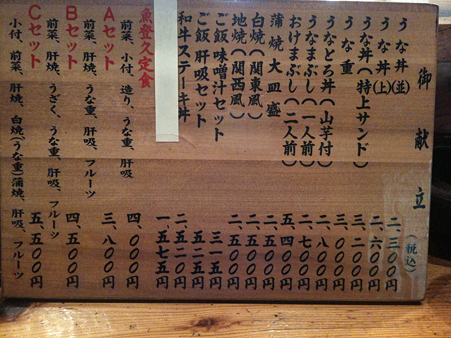 御献立 (税込)
うな丼(並) 二、三〇〇円
うな丼(上) 二、六〇〇円
うな丼(特上サンド) 三、二〇〇円
うな重 三、〇〇〇円
うなとろ丼(山芋付) 二、八〇〇円
うなまぶし(一人前) 二、七〇〇円
おけまぶし(二人前) 五、四〇〇円
蒲焼大皿盛 二、五〇〇円
白焼(関東風) 二、五〇〇円
地焼(関西風) 二、五〇〇円
ご飯味噌汁セット 三一五円
ご飯肝吸セット 五二五円
和牛ステーキ丼 二、五二〇円
一、五七五円
魚登久定食
前菜、小付、造り、うな重、肝吸 四、〇〇〇円
Aセット
前菜、肝焼、うな重、肝吸、フルーツ 三、八〇〇円
Bセット
前菜、肝焼、うざく、うな重、肝吸、フルーツ 四、五〇〇円
Cセット
小付、前菜、肝焼、白焼(うな重)蒲焼、肝吸、フルーツ 五、五〇〇円